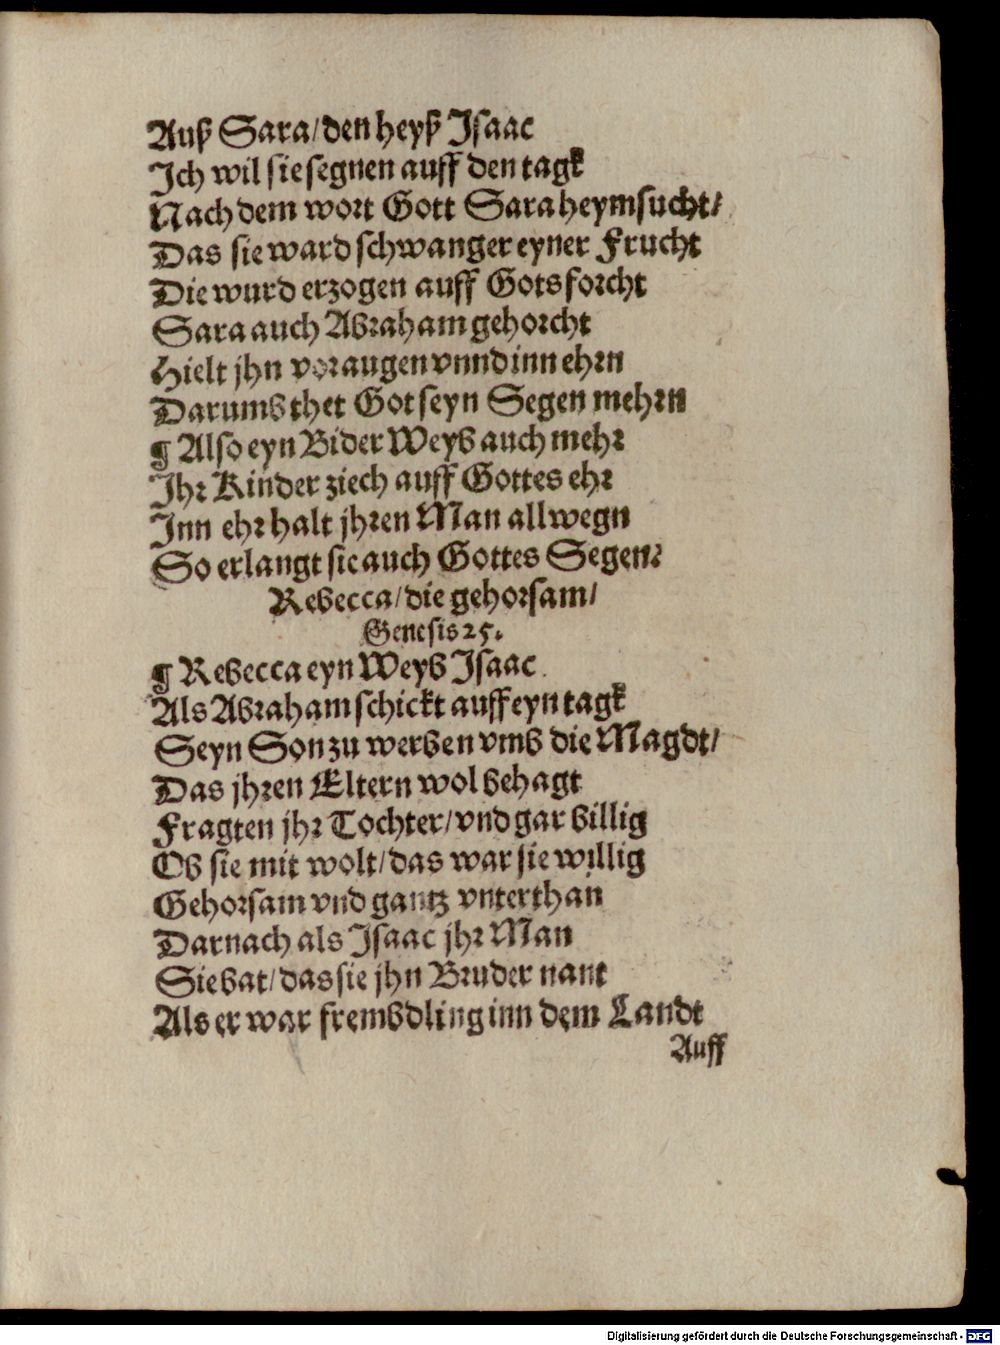 Auß Sara/den heyß Isaac
Ich wil sie segnen auff den tagk
Nach dem wort Gott Sara heymsucht/
Das sie ward schwanger eyner Frucht
Die wurd erzogen auff Gots forcht
Sara auch Abraham gehorcht
Hielt jhn vor augen vnnd inn ehrn
Darumb thet Got seyn Segen mehrn
¶ Also eyn Bider Weyb auch mehr
Ihr Kinder ziech auff Gottes ehr
Inn ehr halt jhren Man allwegn
So erlangt sie auch Gottes Segen.
Rebecca/die gehorsam/
Genesis 25.
¶ Rebecca eyn Weyb Isaac
Als Abraham schickt auff eyn tagk
Seyn Son zu werben vmb die Magdt/
Das jhren Eltern wol behagt
Fragten jhr Tochter/vnd gar billig
Ob sie mit wolt/das war sie willig
Gehorsam vnd gantz vnterthan
Darnach als Isaac jhr Man
Sie bat/das sie jhn Bruder nant
Als er war frembdling inn dem Landt
Auff
Digitalisierung gefördert durch die Deutsche Forschungsgemeinschaft - DFG